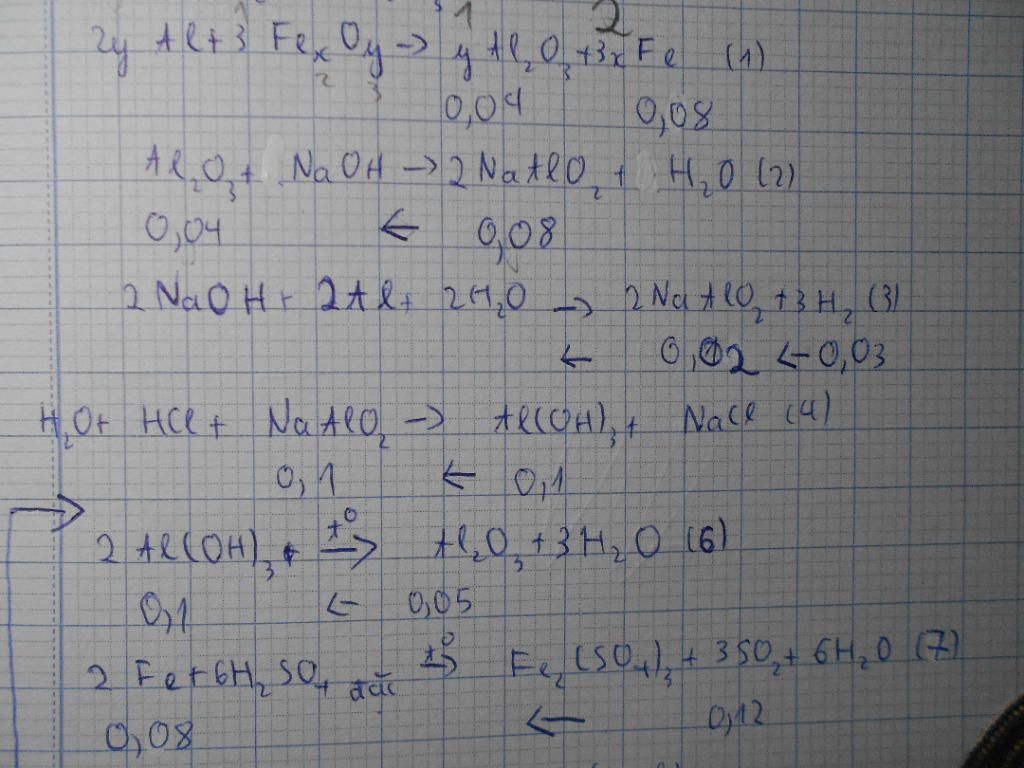 1 1 2
2y Al + 3 FexOy → y Al2O3 + 3x Fe (1)
2 3
0,04 0,08
Al2O3 + NaOH → 2 NaAlO2 + H2O (2)
0,04 ← 0,08
2 NaOH + 2Al + 2H2O → 2 NaAlO2 + 3H2 (3)
← 0,02 ← 0,03
H2O + HCl + NaAlO2 → Al(OH)3 + NaCl (4)
0,1 ← 0,1
2 Al(OH)3 t° → Al2O3 + 3H2O (6)
0,1 ← 0,05
2 Fe + 6H2SO4 đặc t° → Fe2(SO4)3 + 3SO2 + 6H2O (7)
0,08 ← 0,12